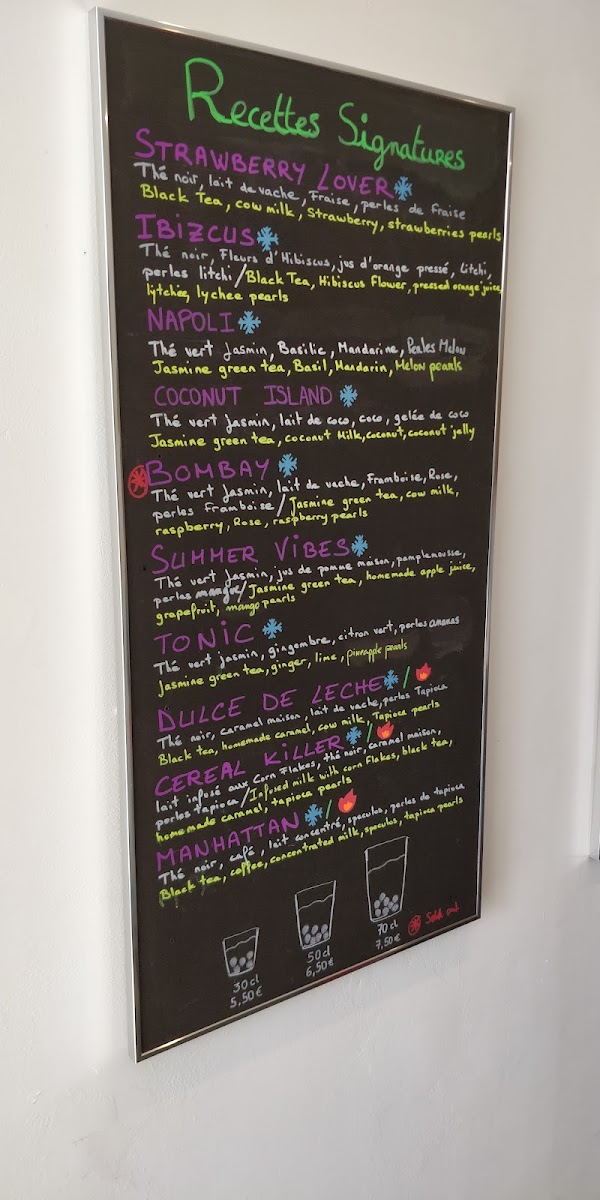 Recettes Signatures
STRAWBERRY LOVER
Thé noir, lait de vache, Fraise, perles de fraise
Black Tea, cow milk, Strawberry, strawberries pearls
IBIZCUS
Thé noir, Fleurs d'Hibiscus, jus d'orange pressé, Litchi,
perles litchi/Black Tea, Hibiscus Flower, pressed orange juice,
lychee pearls
NAPOLI
Thé vert Jasmin, Basilic, Mandarine, Perles Melon
Jasmine green tea, Basil, Mandarin, Melon pearls
COCONUT ISLAND
Thé vert Jasmin, lait de coco, coco, gelée de coco
Jasmine green tea, coconut Milk, coconut, coconut jelly
BOMBAY
Thé vert Jasmin, lait de vache, Framboise, Rose,
perles Framboise/Jasmine green tea, cow milk,
raspberry, Rose, raspberry pearls
SUMMER VIBES
Thé vert Jasmin, jus de pomme maison, pamplemousse,
perles mangue/Jasmine green tea, homemade apple juice,
grapefruit, mango pearls
TONIC
Thé vert jasmin, gingembre, citron vert, perles ananas
Jasmine green tea, ginger, lime, pineapple pearls
DULCE DE LECHE /
Thé noir, caramel maison, lait de vache, perles Tapioca
Black tea, homemade caramel, cow milk, Tapioca pearls
CEREAL KILLER /
lait infusé aux Corn Flakes, thé noir, caramel maison,
perles tapioca/Infused milk with corn Flakes, black tea,
homemade caramel, tapioca pearls
MANHATTAN /
Thé noir, café, lait concentré, speculos, perles de tapioca
Black tea, coffee, concentrated milk, speculos, tapioca pearls
30cl
5,50€
50cl
6,50€
70cl
7,50€
out